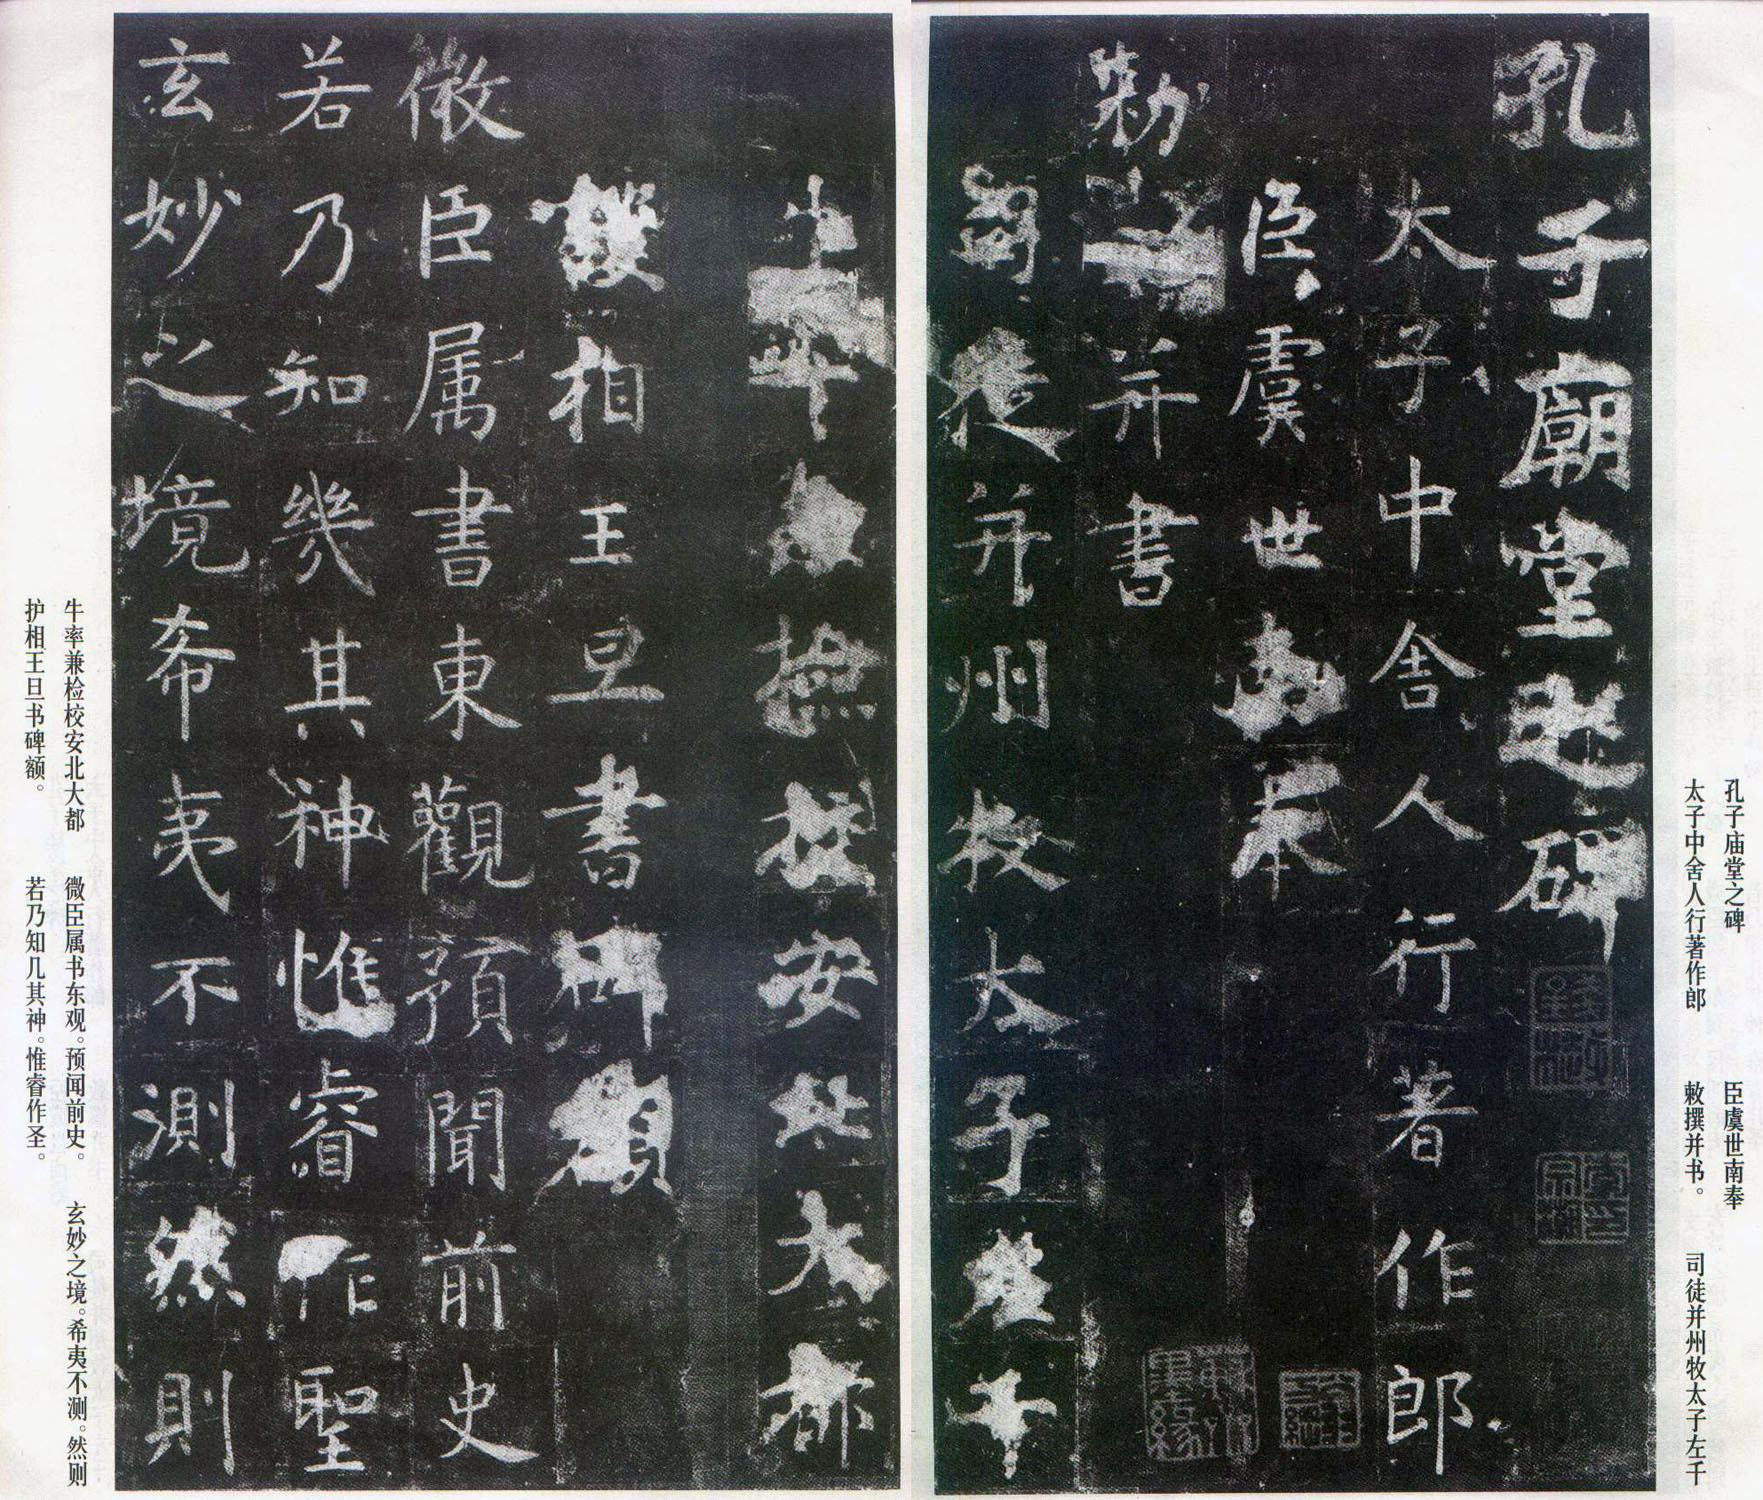 孔子廟堂之碑
太子中舍人行著作郎
臣虞世南奉
勑撰并書
司徒并州牧太子左千
牛率兼檢校安北大都
護相王旦書碑額
微臣属書東觀預聞前史
若乃知幾其神惟睿作聖
玄妙之境希夷不測然則
孔子庙堂之碑
太子中舍人行著作郎
臣虞世南奉
敕撰并书。
司徒并州牧太子左千
牛率兼检校安北大都
护相王旦书碑额。
微臣属书东观。预闻前史。
若乃知几其神。惟睿作圣。
玄妙之境。希夷不测。然则